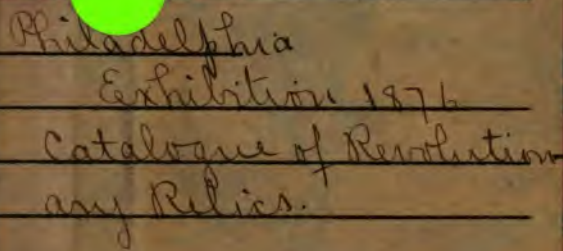 Philadelphia
Exhibition 1876
Catalogue of Revolution
ary Relics.